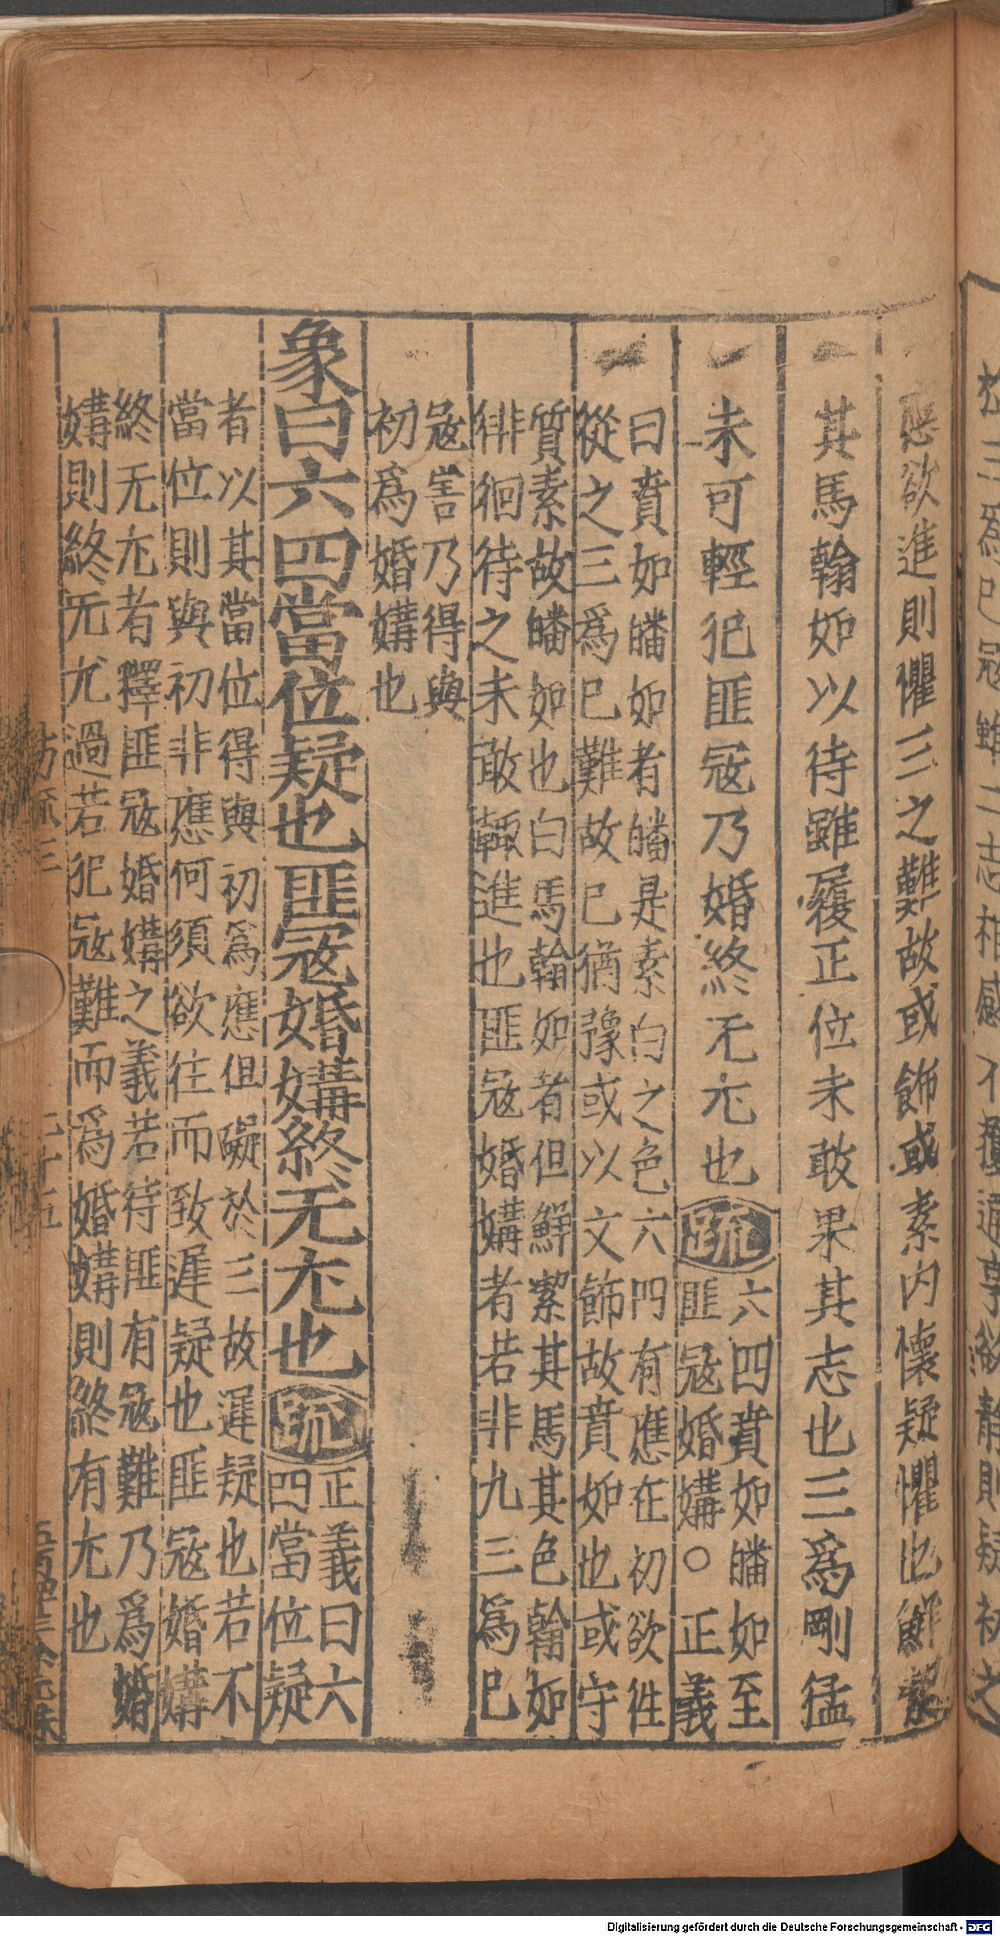 應欲進則懼三之難故或飾或素内懷疑懼也鮮絜
其馬翰如以待雖履正位未敢果其志也三爲剛猛
未可輕犯匪冦乃婚終无尤也疏
六四賁如皤如至
匪冦婚媾○正義
曰賁如皤如者皤是素白之色六四有應在初欲往
從之三爲己難故己猶豫或以文飾故賁如也或守
質素故皤如也白馬翰如者但鮮絜其馬其色翰如
徘徊待之未敢輙進也匪冦婚媾者若非九三爲己
冦害乃得與
初爲婚媾也
象曰六四當位疑也匪冦婚媾終无尤也疏
正義曰六
四當位疑
者以其當位得與初爲應但礙於三故遲疑也若不
當位則與初非應何須欲往而致遲疑也匪冦婚媾
終无尤者釋匪冦婚媾之義若待匪有冦難乃爲婚
媾則終无尤過若犯冦難而爲婚媾則終有尤也
Digitalisierung gefördert durch die Deutsche Forschungsgemeinschaft - DFG